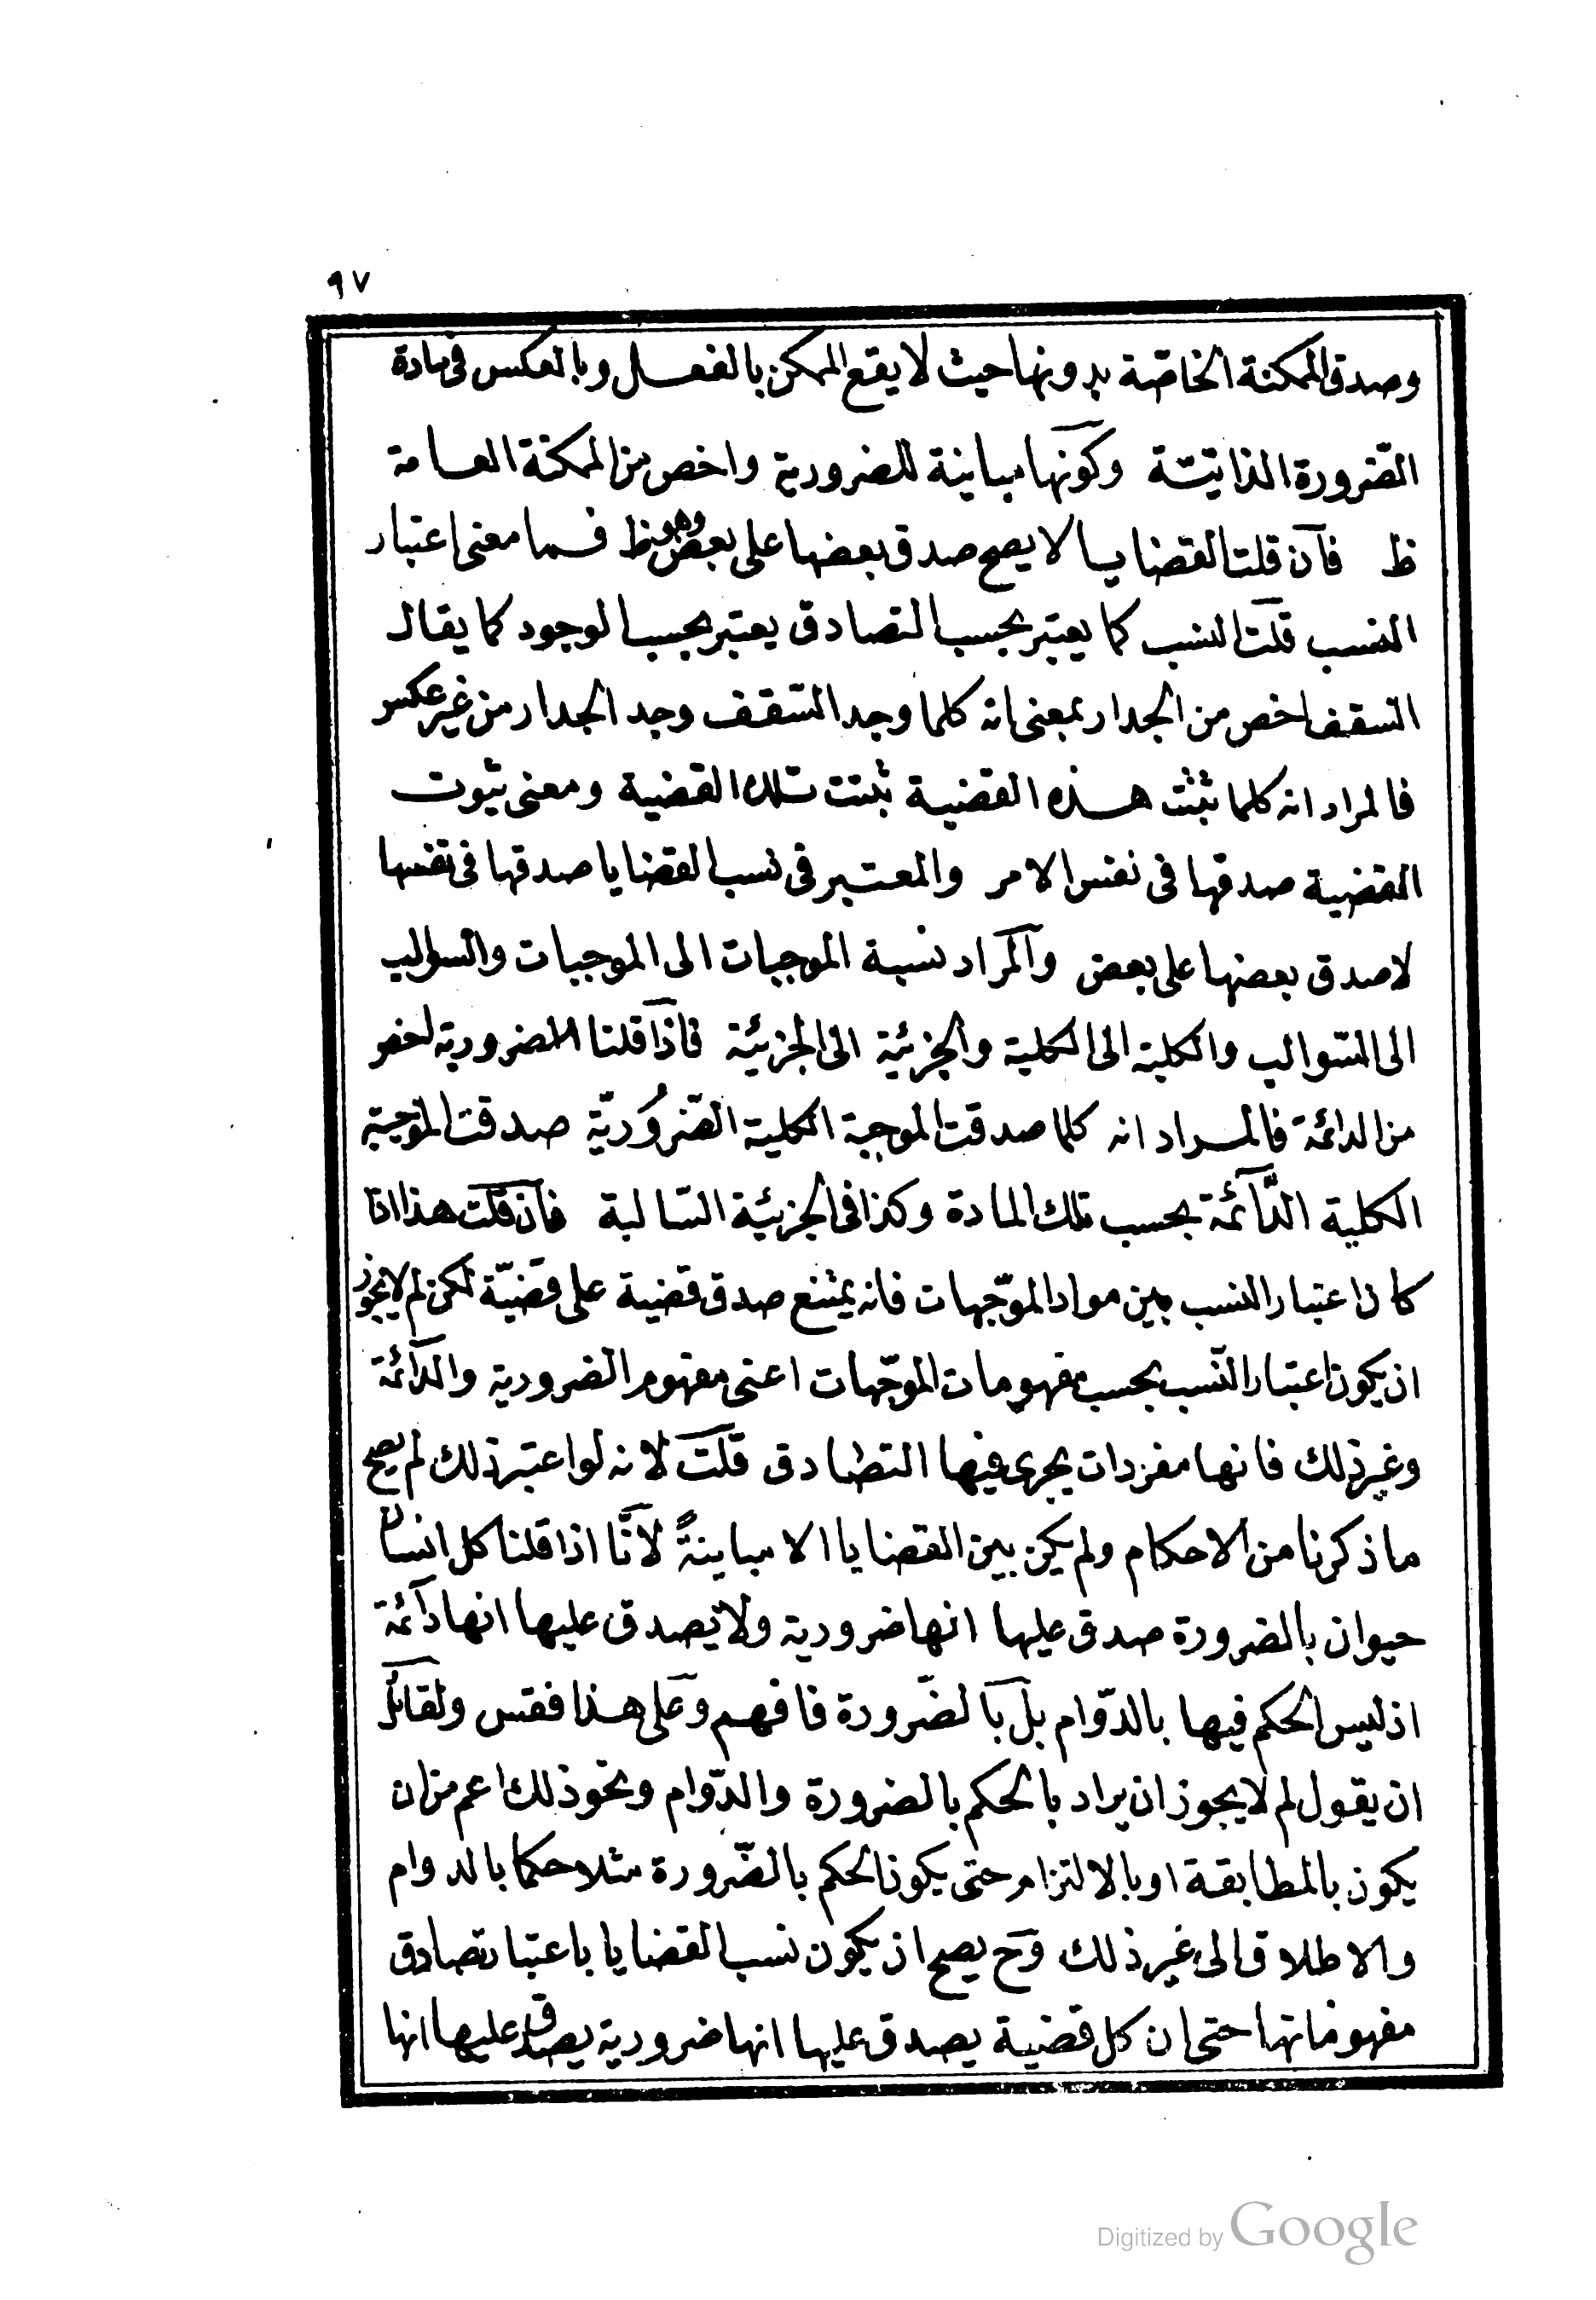 ٩٧
وصدق الممكنة الخاصّة بدونها حيث لا يقع الممكن بالفعل وبالعكس فى مادة
الضّرورة الذاتيّة وكونها مباينة للضرورية واخص من الممكنة العامة
ظ فان قلت القضايا لا يصح صدق بعضها على بعض وهو ظ فما معنى اعتبار
النسب قلت النسب كما يعتبر بحسب التصادق يعتبر بحسب الوجود كما يقال
السقف اخص من الجدار بمعنى انه كلما وجد السّقف وجد الجدار من غير عكس
فالمراد انه كلما ثبتت هذه القضية ثبتت تلك القضية ومعنى ثبوت
القضية صدقها فى نفس الامر والمعتبر فى نسب القضايا صدقها فى نفسها
لا صدق بعضها على بعض والمراد نسبة الموجبات الى الموجبات والسوالب
الى السّوالب والكلية الى الكلية والجزئية الى الجزئية فاذا قلنا الضرورية اخص
من الدائمة فالمراد انه كلما صدقت الموجبة الكلية الضّروريّة صدقت الموجبة
الكلية الدّآئمة بحسب تلك المادة وكذا فى الجزئية السّالبة فان قلت هذا اذا
كان اعتبار النسب بين مواد الموّجهات فانه يمتنع صدق قضية على قضيّة لكن لم لا يجوز
ان يكون اعتبار النّسب بحسب مفهومات الموّجهات اعنى مفهوم الضرورية والدآئمة
وغير ذلك فانها مفردات يجرى فيها التصادق قلت لانه لو اعتبر ذلك لم يصح
ما ذكرنا من الاحكام ولم يكن بين القضايا الا مباينةً لانّا اذا قلنا كل انسان
حيوان بالضرورة صدق عليها انها ضرورية ولا يصدق عليها انها دآئمة
اذ ليس الحكم فيها بالدّوام بل بالضّرورة فافهم وعلى هذا فقس ولقائل
ان يقول لم لا يجوز ان يراد بالحكم بالضرورة والدّوام ونحو ذلك اعم من ان
يكون بالمطابقة او بالالتزام حتى يكون الحكم بالضّرورة مثلا حكما بالدوام
والاطلاق الى غير ذلك وح يصح ان يكون نسب القضايا باعتبار تصادق
مفهوماتها حتى ان كل قضية يصدق عليها انها ضرورية يصدق عليها انها
Digitized by Google